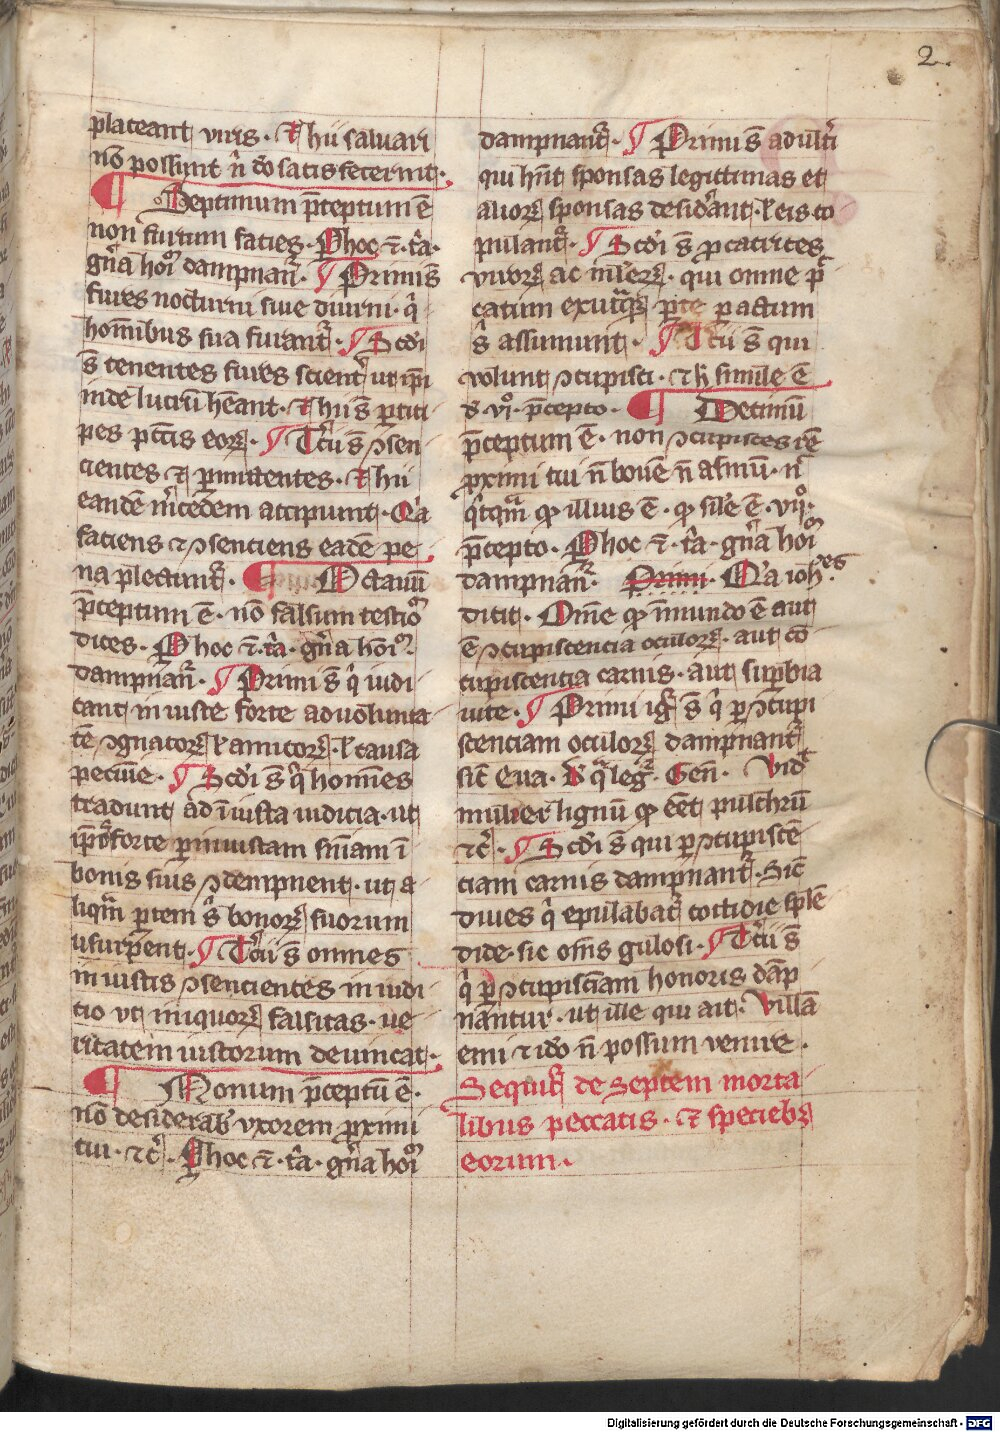 2.
placeant viris. Et hii saluari
nō possunt n̄ deo satisfecerint.
¶ Septimum p̄ceptum ē
non furtum facies. P hoc ⁊ t̄ia.
gn̄a hoīm dampnant̄. ¶ Primi s̄
fures nocturni siue diurni. qi
hominibus sua furant̄. ¶ Scd̄i
s̄ tenentes fures scient̄ ut ip̄i
inde lucrū hēant. Et hii s̄ partici
pes pctīs eoꝝ. ¶ Tercii s̄ ↄsen
cientes ⁊ permittentes. Et hii
eandē m̄cedem accipiunt. Q̄a
faciens ⁊ ↄsenciens eadē pe
na plectunt̄. ¶ Octauū
p̄ceptum ē. nō falsum testīoꝫ
dices. P hoc ⁊ t̄ia. gn̄a hoīm
dampnant̄. ¶ Primi s̄ qi iudi
cant iniuste forte ad uolunta
tē ↄgnatoꝝ ł amicoꝝ. ł causa
pecunie. ¶ Scd̄i s̄ qi homines
tradunt ad iniusta iudicia. ut
ip̄i forte per iniustam sn̄iam ī
bonis suis ↄdempnent. ut a
liqm̄ partem s̄ bonoꝝ suorum
usurpent. ¶ Tercii s̄ omnes
iniustis ↄsencientes in iudi
cio ut iniquoꝝ falsitas. ue
ritatem iustorum deuincat.
¶ Nonum p̄ceptū ē.
nō desiderab̄ vxorem proximi
tui. ⁊c̄. P hoc ⁊ t̄ia. gn̄a hoīm
dampnant̄. ¶ Primi s̄ adult̄i
qui hn̄t sponsas legittimas et
alioꝝ sponsas desid̄ant. ł eis co
pulant̄. ¶ Scd̄i s̄ peccatrices
viroꝝ ac mulieꝝ. qui omne pec
catum per actum
s̄ assumunt. ¶ Tercii s̄ qui
volunt ↄcupisci. ⁊ h̄ simile ē
s. vi. p̄cepto. ¶ Decimū
p̄ceptum ē. non ↄcupisces rē
proximi tui n̄ bouē n̄ asinū. n̄
qicqm̄ qd illius ē. qd sile ē. vii.
p̄cepto. P hoc ⁊ t̄ia. gn̄a hoīm
dampnant̄. Primi. Q̄a ioh̄es
dicit. Om̄e qd in mundo ē aut
ē ↄcupiscencia oculoꝝ. aut cō
cupiscentia carnis. aut supbia
uite. ¶ Primi igr̄ s̄ qi per ↄcupi
scenciam oculoꝝ dampnant̄
sic̄ Eua. D qa leg̃. Gen̄. Vid
mulier lignū qd eēt pulchrū
⁊c̄. ¶ Scd̄i s̄ qui per ↄcupiscē
ciam carnis dampnant̄. Sic̄
diues qi epulabat̄ cottidie splē
dide. sic om̄s gulosi. ¶ Tercii s̄
qi per ↄcupisciam honoris dāp
nantur. ut ille qui ait. Villā
emi ⁊ ido n̄ possum venire.
Sequit̄ de septem morta
libus peccatis. ⁊ speciebꝫ
eorum.
Digitalisierung gefördert durch die Deutsche Forschungsgemeinschaft - DFG